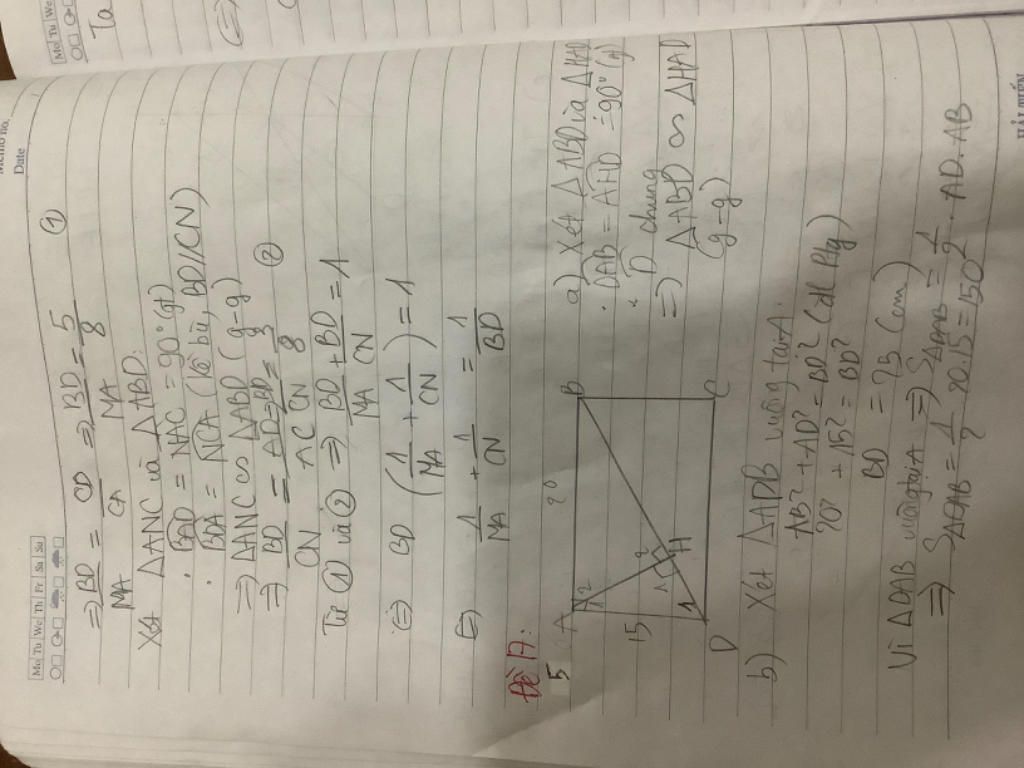 Memo No.
Date
Mo Tu We Th Fr Sa Su
⇒ BD/MA = CD/CA ⇒ BD/MA = 5/8 ①
Xét ΔANC và ΔABD.
· BAD = NAC = 90° (gt)
· BDA = NCA (lề bù, BD//CN)
⇒ ΔANC ∽ ΔABD (g-g)
⇒ BD/CN = AD/AC = BD/CN = 3/8 ②
Từ ① và ② ⇒ BD/MA + BD/CN = 1
(=) BD (1/MA + 1/CN) = 1
(=) 1/MA + 1/CN = 1/BD
Đề 17:
5
A
20
B
15
2
1
2
1
1
H
D
C
a) Xét ΔABD và ΔHAD
· DAB = AHD = 90° (gt)
· D chung
⇒ ΔABD ∽ ΔHAD
(g-g).
b) Xét ΔADB vuông tại A.
AB² + AD² = BD² (đl Pytg)
20² + 15² = BD²
BD = 25 (cm)
Vì ΔDAB vuông tại A ⇒ SDAB = 1/2 . AD. AB
⇒ SDAB = 1/2 20.15 = 150
HẢI TIẾN
Mo Tu We
Ta
(=)